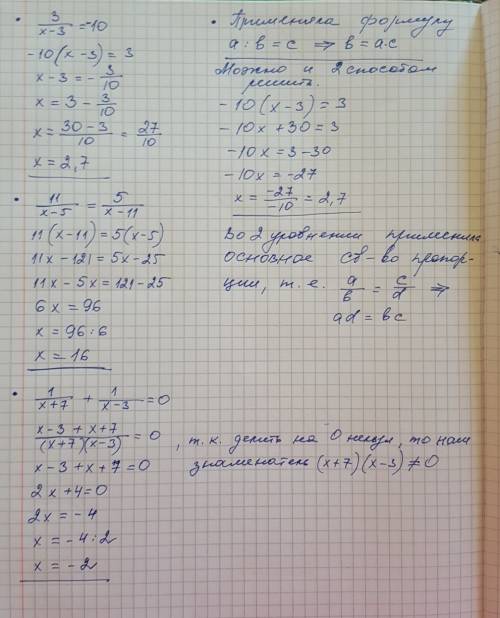 3/(x-3) = -10
-10(x-3) = 3
x-3 = -3/10
x = 3 - 3/10
x = (30-3)/10 = 27/10
x = 2,7
Применяла формулу
a : b = c ⇒ b = a·c
Можно и 2 способом
решить.
-10(x-3) = 3
-10x + 30 = 3
-10x = 3-30
-10x = -27
x = -27/-10 = 2,7
11/(x-5) = 5/(x-11)
11(x-11) = 5(x-5)
11x - 121 = 5x - 25
11x - 5x = 121 - 25
6x = 96
x = 96 : 6
x = 16
Во 2 уравнении применила
основное св-во пропор-
ции, т.е. a/b = c/d ⇒
ad = bc
1/(x+7) + 1/(x-3) = 0
(x-3+x+7)/((x+7)(x-3)) = 0, т.к. делить на 0 нельзя, то наш
знаменатель (x+7)(x-3) ≠ 0
x-3+x+7 = 0
2x+4 = 0
2x = -4
x = -4 : 2
x = -2